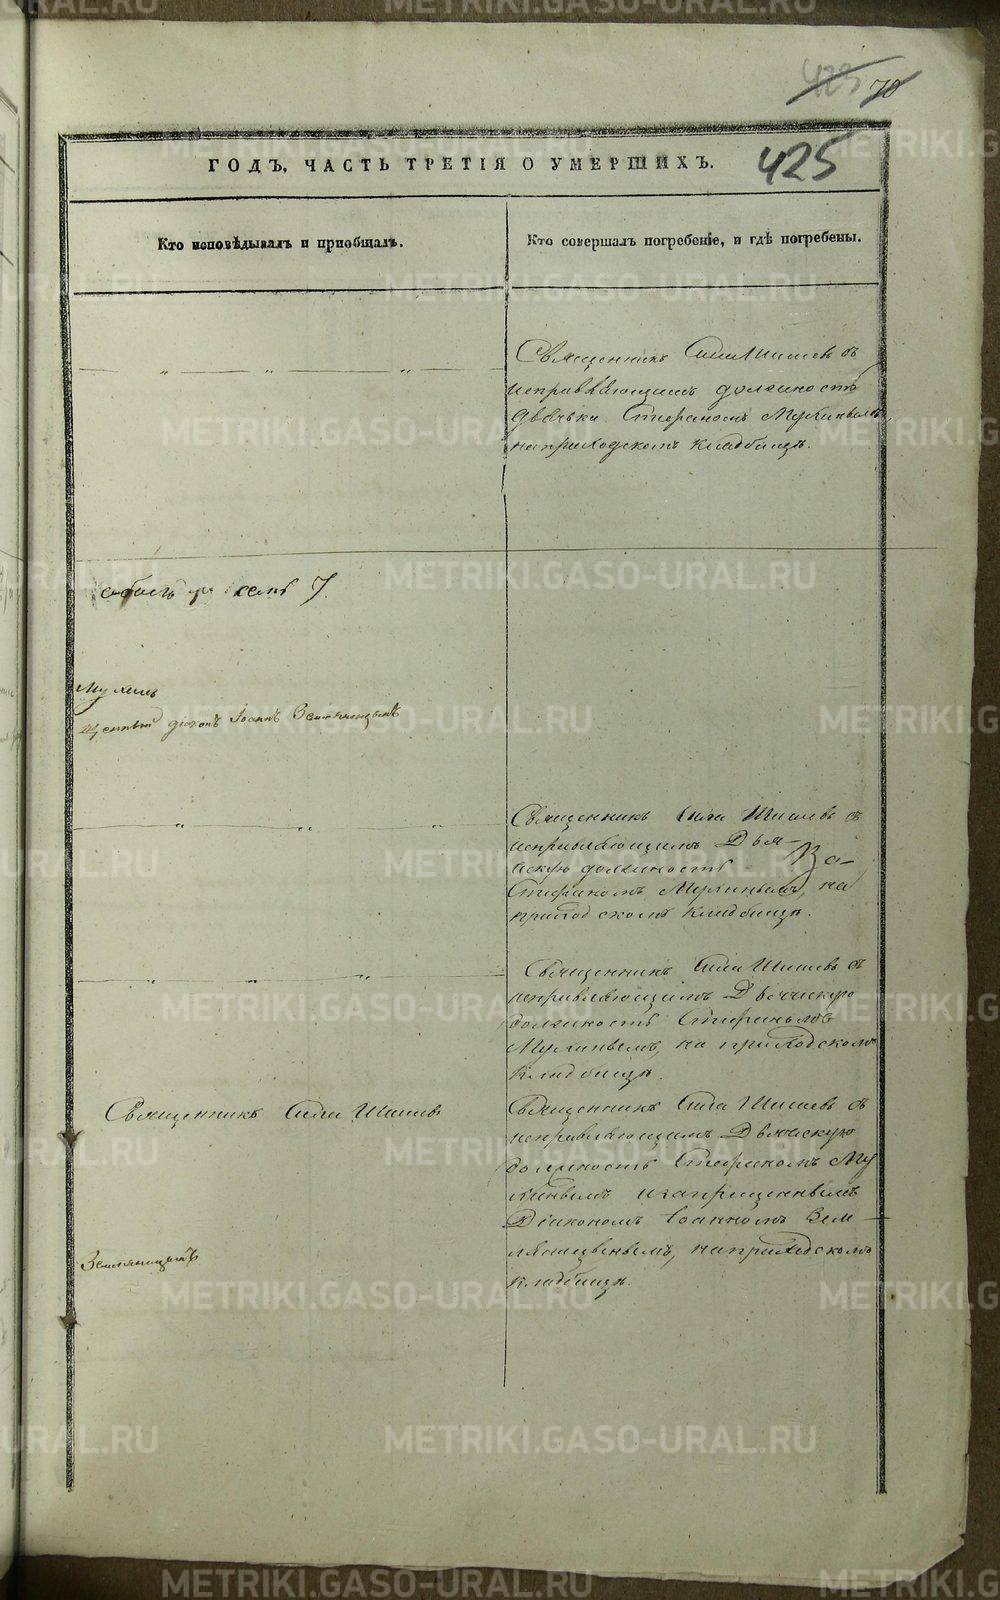 70
425
ГОДЪ, ЧАСТЬ ТРЕТІЯ О УМЕРШИХЪ.
Кто исповѣдывалъ и пріобщалъ.
Кто совершалъ погребеніе, и гдѣ погребены.
Священникъ Сила Шишевъ съ
исправляющимъ должность
Дьячька Стефаномъ Мухинымъ
на приходскомъ кладбищѣ.
7.
діаконъ Іоаннъ Земляницынъ
Священникъ Сила Шишевъ съ
исправляющимъ Дья-
должность
Стефаномъ Мухинымъ, на
приходскомъ кладбищѣ.
Священникъ Сила Шишевъ съ
исправляющимъ Дьяческую
должность Стефаномъ
Мухинымъ, на приходскомъ
кладбищѣ.
Священникъ Сила Шишевъ
Священникъ Сила Шишевъ съ
исправляющимъ Дьяческую
должность Стефаномъ Му
хинымъ и запрещеннымъ
Діакономъ Іоанномъ Зем
ляницынымъ, на приходскомъ
кладбищѣ.
Земляницынъ
METRIKI.GASO-URAL.RU